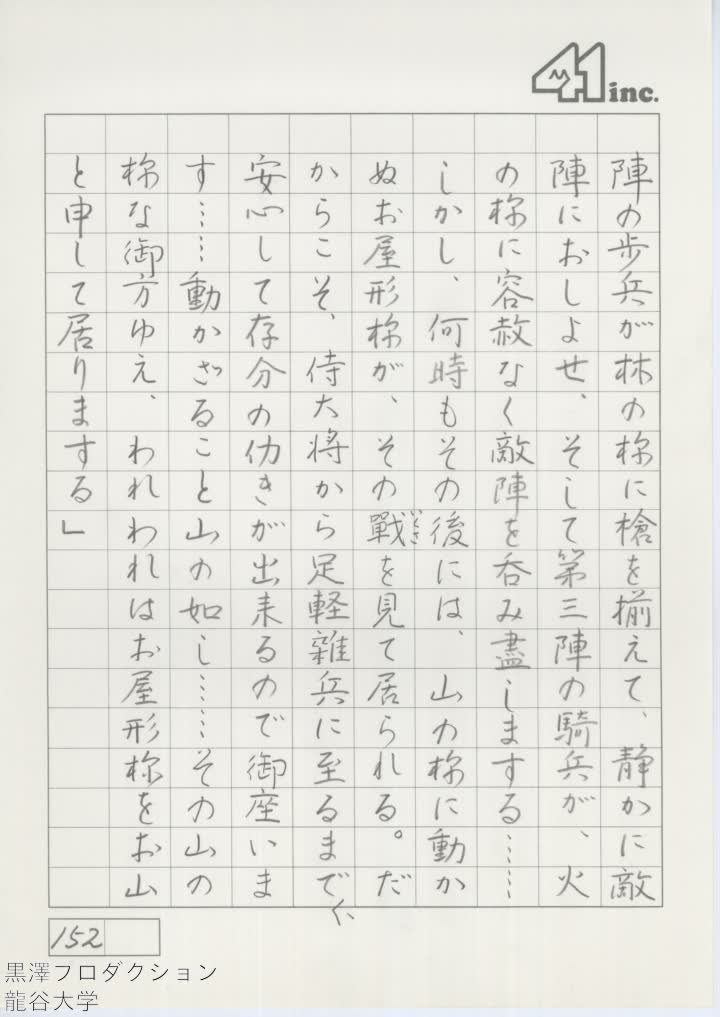 41 inc.
陣の歩兵が林の様に槍を揃えて、静かに敵
陣におしよせ、そして第三陣の騎兵が、火
の様に容赦なく敵陣を呑み盡しまする……
しかし、何時もその後には、山の様に動か
ぬお屋形様が、その戰いくさを見て居られる。だ
からこそ、侍大将から足軽雑兵に至るまで、
安心して存分の仂きが出来るので御座いま
す……動かざること山の如し……その山の
様な御方ゆえ、われわれはお屋形様をお山
と申して居りまする」
152
黒澤プロダクション
龍谷大学